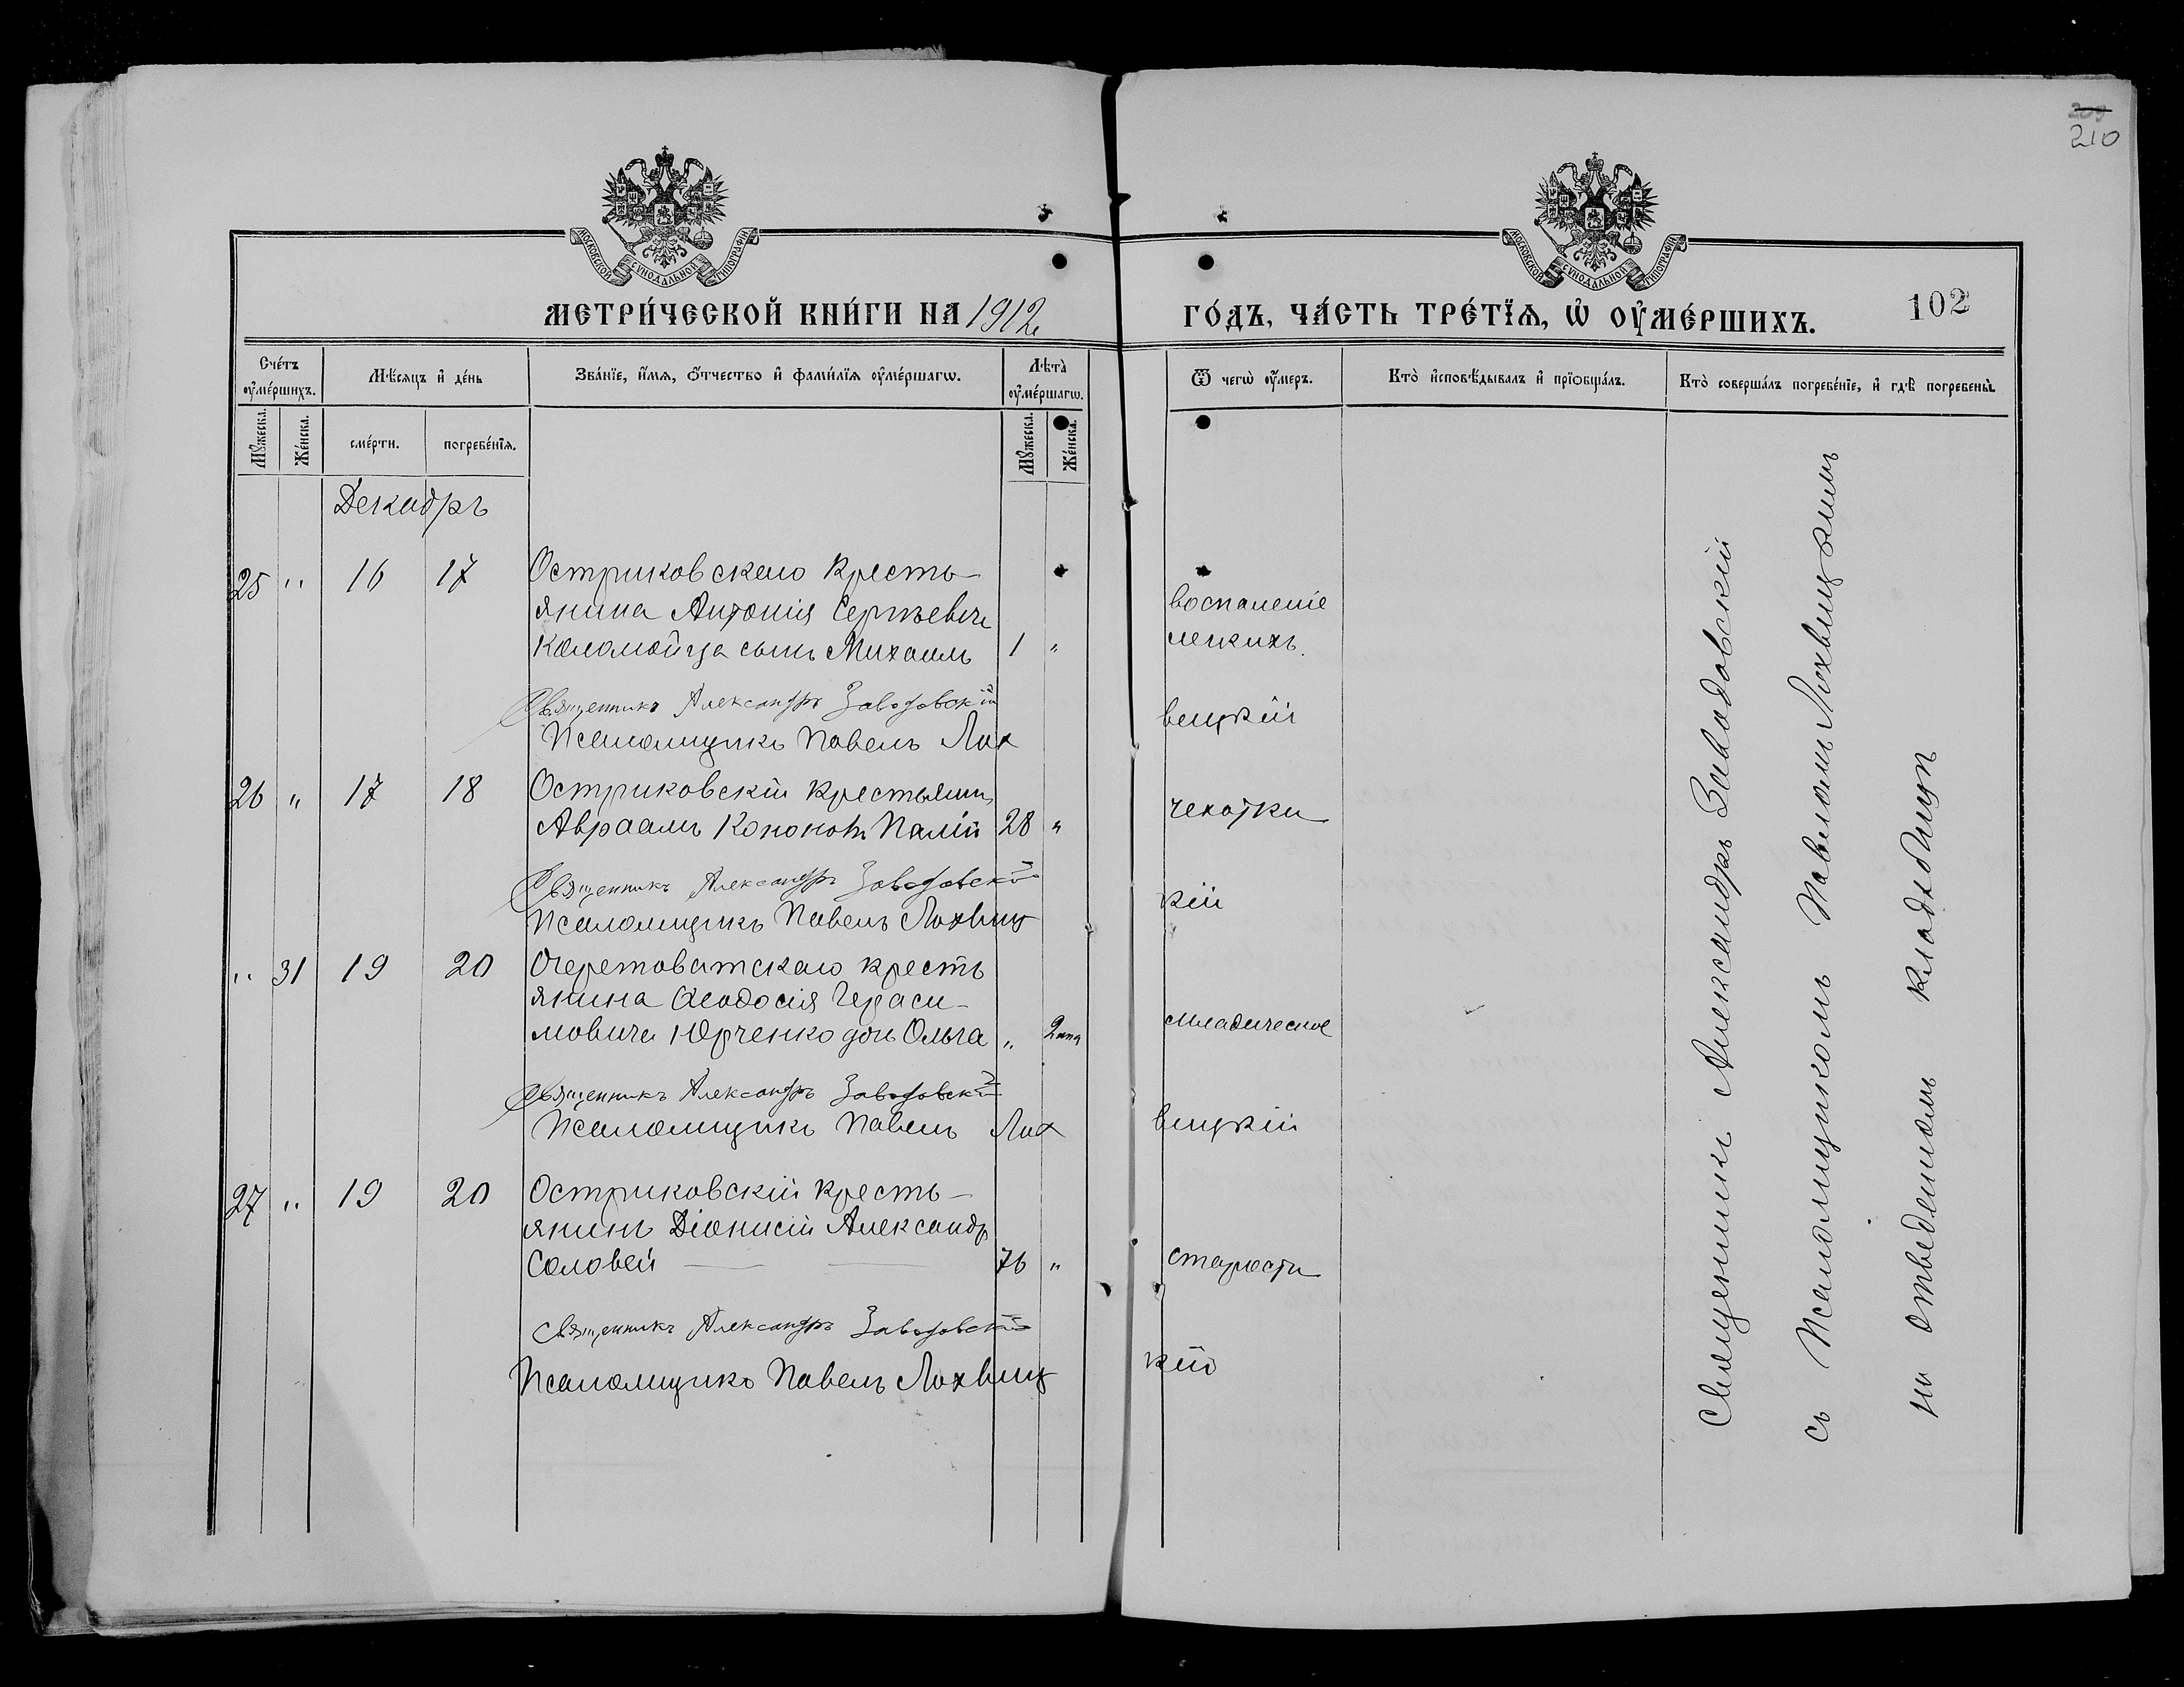 209
210
МОСКОВСКОЙ СѴНОДАЛЬНОЙ ТИПОГРАФІИ
МОСКОВСКОЙ СѴНОДАЛЬНОЙ ТИПОГРАФІИ
МЕТРИ́ЧЕСКОЙ КНИ́ГИ НА 1912
ГО́ДЪ, ЧА́СТЬ ТРЕ́ТЇѦ, Ѡ҆ ОУ҆МЕ́РШИХЪ.
102
Сче́тъ оу҆ме́ршихъ.
Мѣ́сѧцъ и҆ де́нь
Зва́нїе, и҆́мѧ, ѻ҆́тчество и҆ фами́лїѧ оу҆ме́ршагѡ.
Лѣ́та оу҆ме́ршагѡ.
Ѿ чегѡ̀ оу҆́меръ.
Кто̀ и҆сповѣ́дывалъ и҆ прїѡбща́лъ.
Кто̀ соверша́лъ погребе́нїе, и҆ гдѣ̀ погребены̀.
Мꙋ́жеска.
Же́нска.
сме́рти.
погребе́нїѧ.
Мꙋ́жеска.
Же́нска.
Декабрь
25 " 16 17 Остриковскаго кресть-
янина Антонія Сергѣевича
Коломойца сынъ Михаилъ 1 "
воспаленіе
легкихъ.
Священникъ Александръ Заводовскій
Псаломщикъ Павелъ Лохвицкій
26 " 17 18 Остриковскій крестьянинъ
Авраамъ Кононовъ Палій 28 " чехотки
Священникъ Александръ Заводовскій
Псаломщикъ Павелъ Лохвицкій
" 31 19 20 Очеретоватскаго кресть
янина Ѳеодосія Гераси-
мовича Юрченко дочь Ольга " 2 младическое
Священникъ Александръ Заводовскій
Псаломщикъ Павелъ Лохвицкій
27 " 19 20 Остриковскій кресть-
янинъ Діонисій Александр
Соловей 76 " старости
Священникъ Александръ Заводовскій
Псаломщикъ Павелъ Лохвицкій
Священникъ Александръ Заводовскій
съ Псаломщикомъ Павломъ Лохвицкимъ
на отведенномъ кладбищѣ